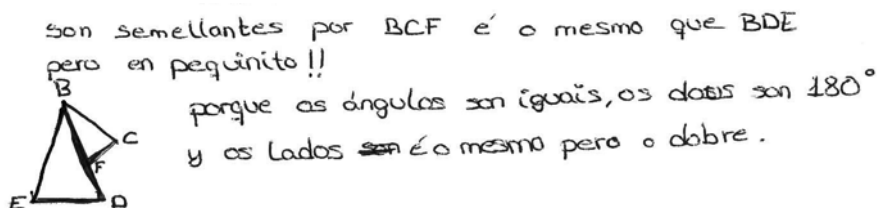 son semellantes por BCF é o mesmo que BDE
pero en pequiñito!!
porque os ángulos son iguais, os dous son 180°
y os lados son é o mesmo pero o dobre.
B
C
F
E
D